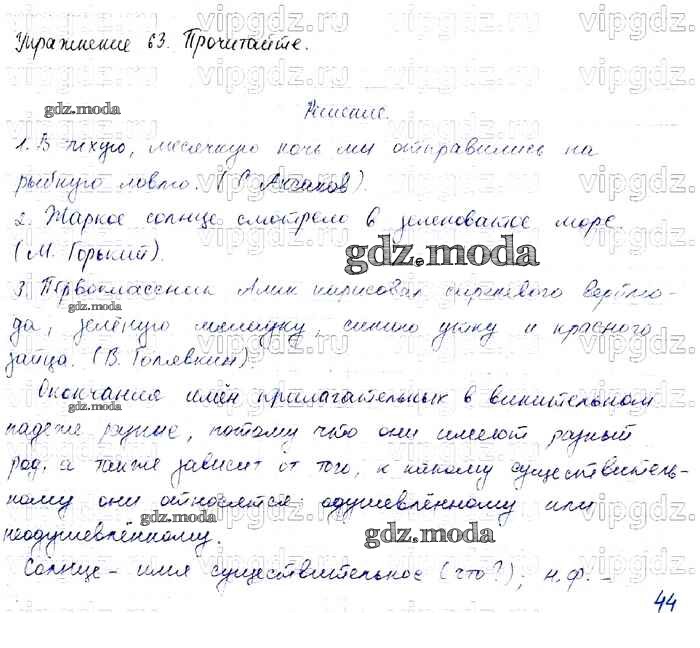 Упражнение 63. Прочитайте.
Решение.
gdz.moda
1. В тихую, месячную ночь мы отправились на
рыбную ловлю. (С. Аксаков).
2. Жаркое солнце смотрело в зеленоватое море.
(М. Горький).
gdz.moda
3. Первоклассник Алик нарисовал сиреневого верблю-
да, зелёную лягушку, синюю утку и красного
зайца. (В. Голявкин).
Окончания имён прилагательных в винительном
падеже разные, потому что они имеют разный
род, а также зависит от того, к какому существитель-
ному они относятся: одушевлённому или
неодушевлённому.
gdz.moda
Солнце – имя существительное (что?), н.ф. –
44